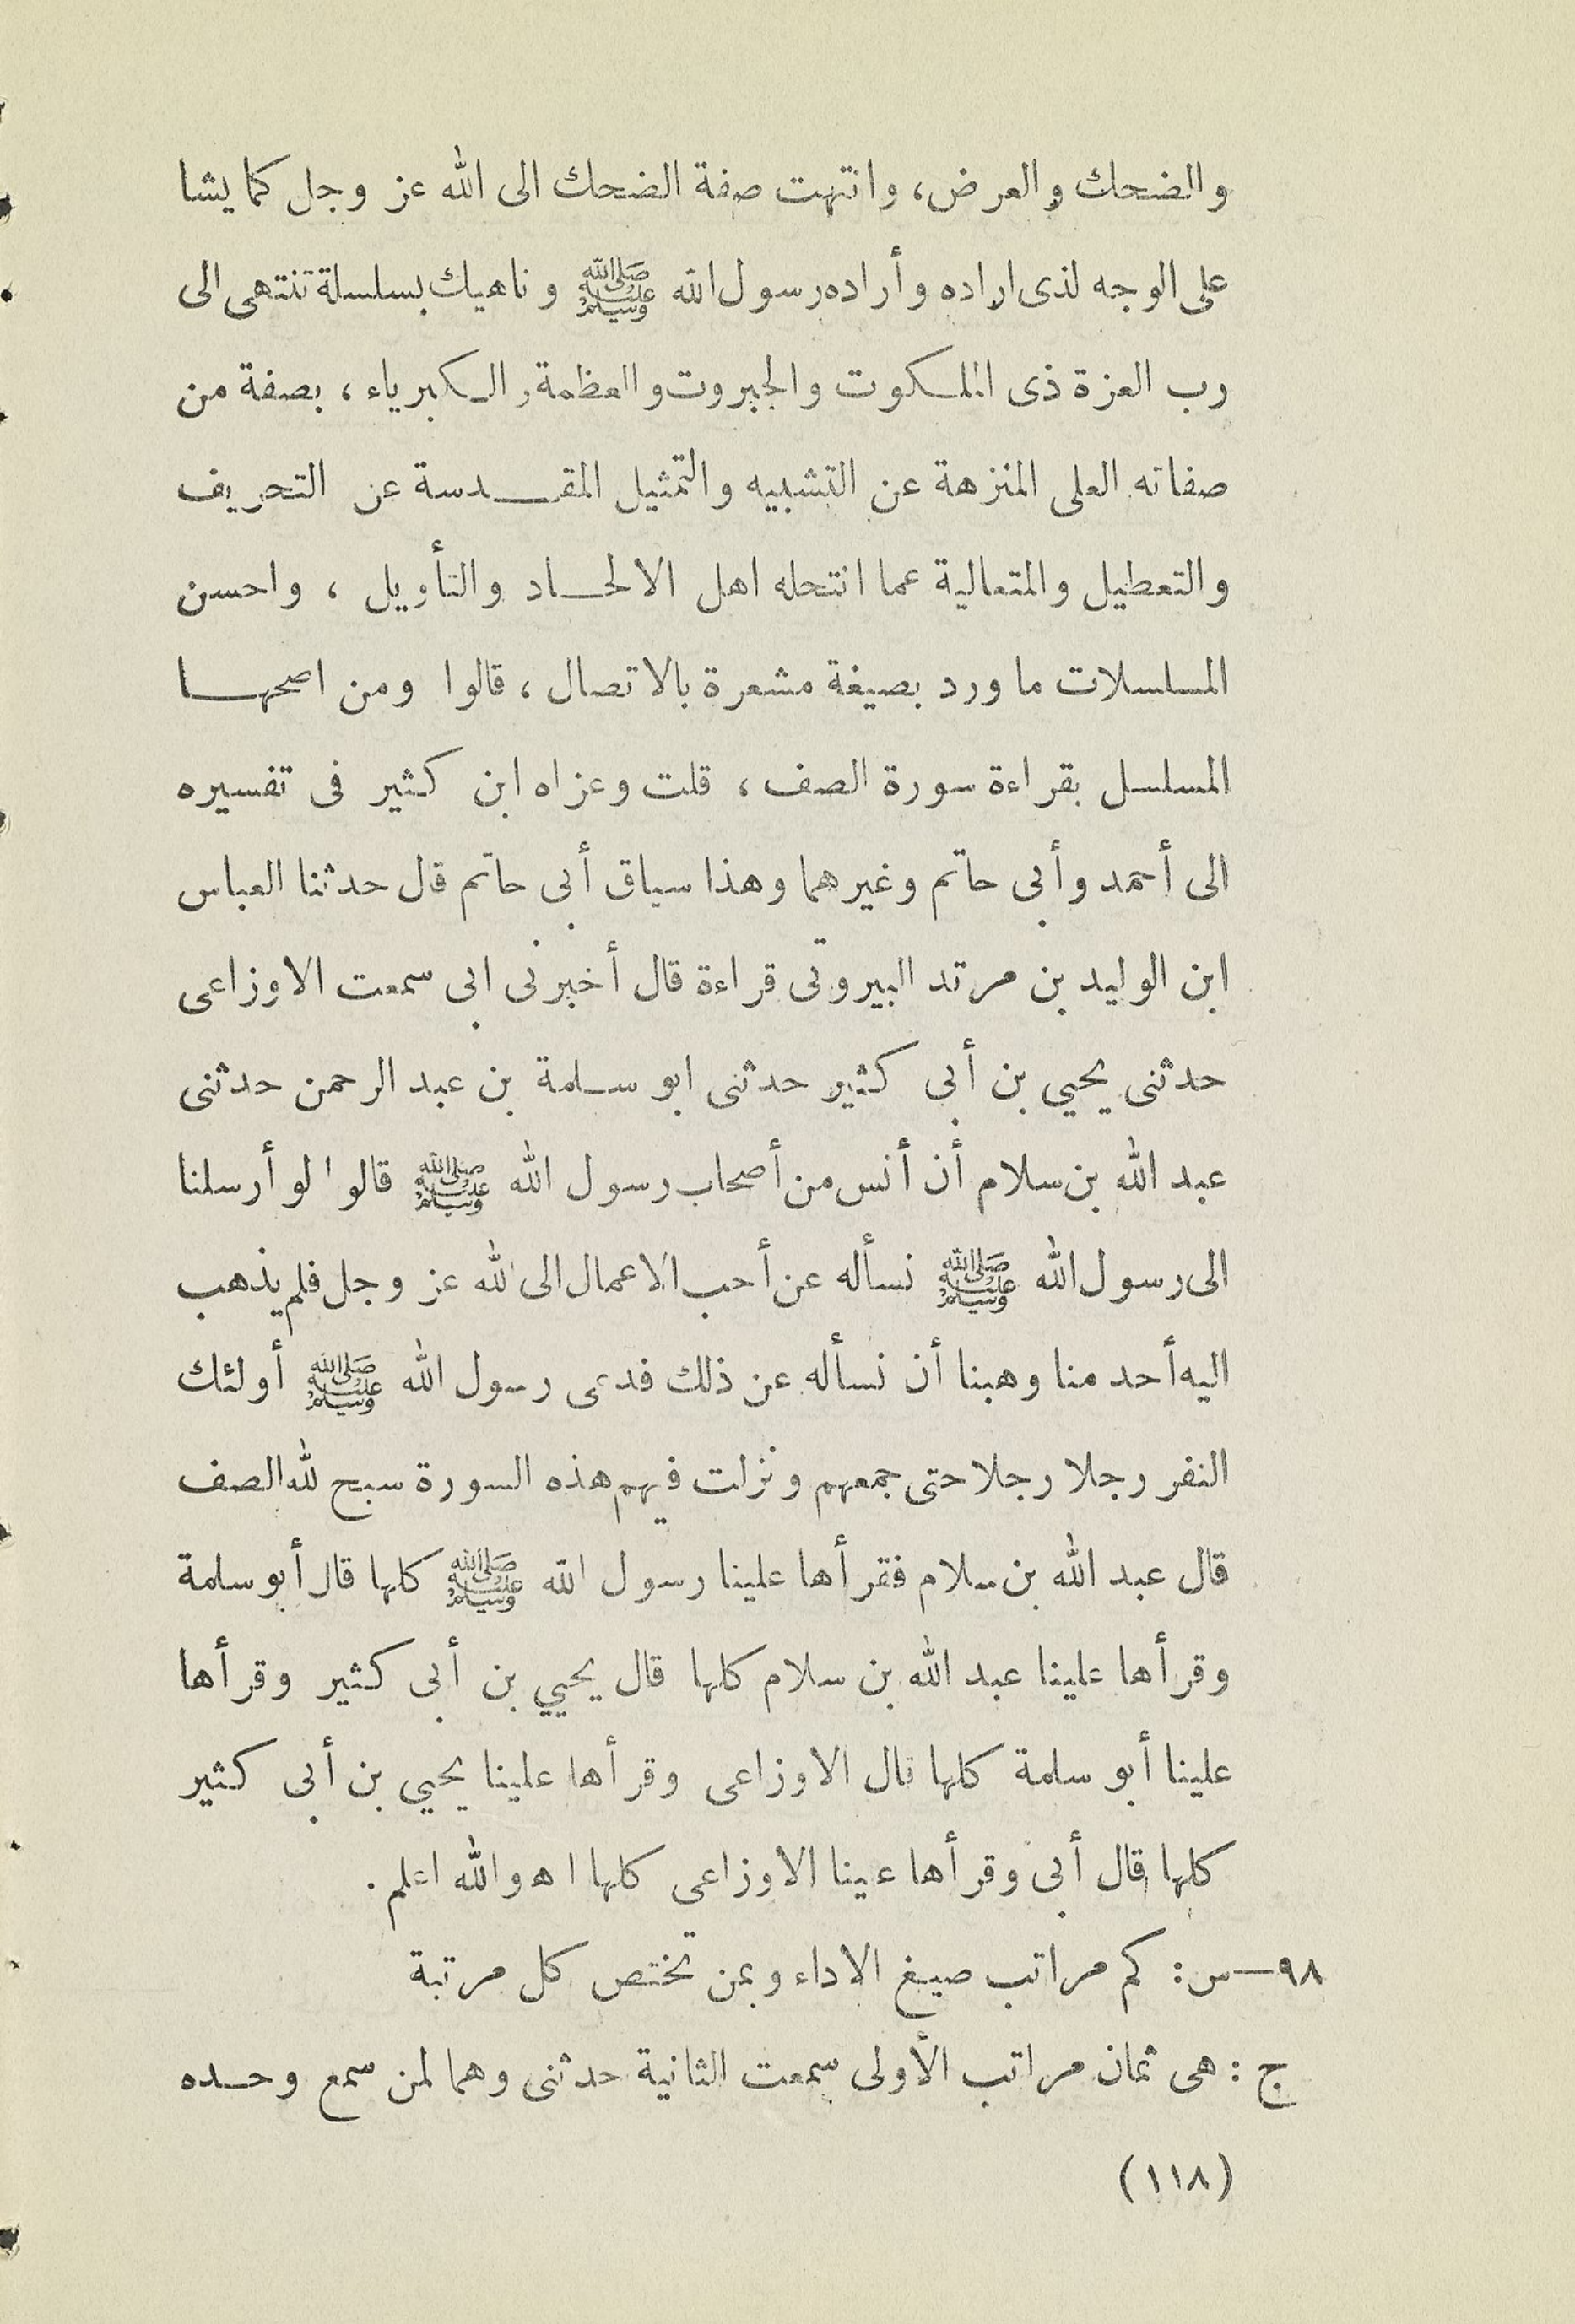 والضحك والعرض، وانتهت صفة الضحك الى الله عز وجل كما يشا
على الوجه لذى اراده وأراده رسول الله ﷺ وناهيك بسلسلة تنتهى الى
رب العزة ذى الملكوت والجبروت والعظمة والكبرياء ، بصفة من
صفاته العلى المنزهة عن التشبيه والتمثيل المقدسة عن التحريف
والتعطيل والمتعالية عما انتحله اهل الالحاد والتأويل ، واحسن
المسلسلات ما ورد بصيغة مشعرة بالاتصال ، قالوا ومن اصحها
المسلسل بقراءة سورة الصف ، قلت وعزاه ابن كثير فى تفسيره
الى أحمد وأبى حاتم وغيرهما وهذا سياق أبى حاتم قال حدثنا العباس
ابن الوليد بن مرتد البيروتى قراءة قال أخبرنى ابى سمعت الاوزاعى
حدثنى يحيي بن أبى كثير حدثنى ابو سلمة بن عبد الرحمن حدثنى
عبد الله بن سلام أن أنس من أصحاب رسول الله ﷺ قالوا لو أرسلنا
الى رسول الله ﷺ نسأله عن أحب الاعمال الى لله عز وجل فلم يذهب
اليه أحد منا وهبنا أن نسأله عن ذلك فدعى رسول الله ﷺ أولئك
النفر رجلا رجلا حتى جمعهم ونزلت فيهم هذه السورة سبح لله الصف
قال عبد الله بن سلام فقرأها علينا رسول الله ﷺ كلها قال أبو سلمة
وقرأها علينا عبد الله بن سلام كلها قال يحيي بن أبى كثير وقرأها
علينا أبو سلمة كلها قال الاوزاعى وقرأها علينا يحيي بن أبى كثير
كلها قال أبى وقرأها عينا الاوزاعى كلها اه والله اعلم .
٩٨—س : كم مراتب صيغ الاداء وبمن تختص كل مرتبة
ج : هى ثمان مراتب الأولى سمعت الثانية حدثنى وهما لمن سمع وحده
(١١٨)